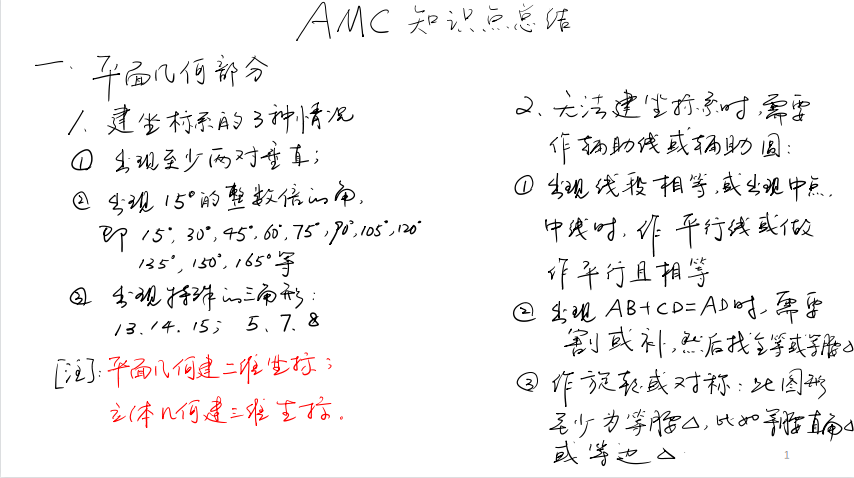 AMC 知识点总结
一. 平面几何部分
1. 建坐标系的3种情况
① 出现至少两对垂直;
② 出现15°的整数倍的角,
即 15°, 30°, 45°, 60°, 75°, 90°, 105°, 120°
135°, 150°, 165°等
③ 出现特殊的三角形:
13. 14. 15; 5、7、8
[注]: 平面几何建二维坐标;
立体几何建三维坐标.
2. 无法建坐标系时,需要
作辅助线或辅助圆:
① 出现线段相等,或出现中点,
中线时, 作 平行线或做
作平行且相等
② 出现 AB+CD=AD时, 需要
割或补, 然后找全等或等腰△
③ 作旋转或对称: 此图形
至少为等腰△, 比如等腰直角△
或等边△
1